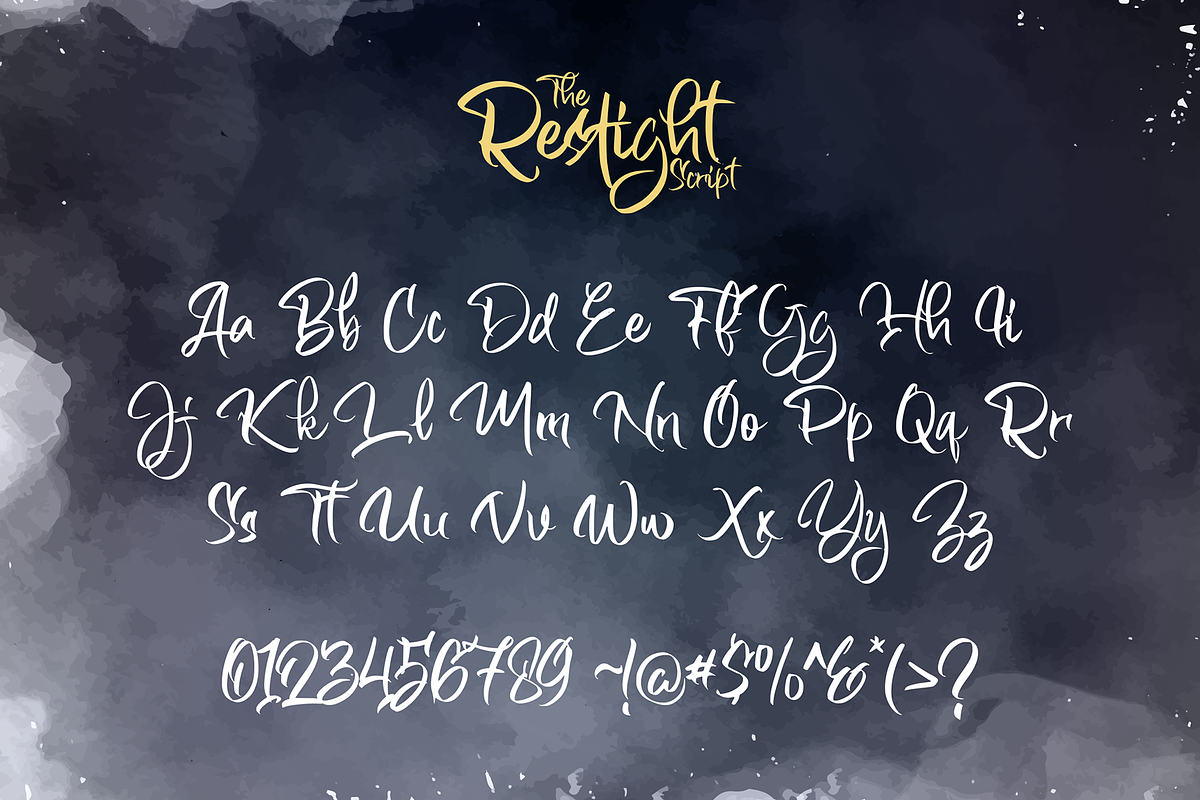 The
Restight
Script
Aa Bb Cc Dd Ee Ff Gg Hh Ii
Jj Kk Ll Mm Nn Oo Pp Qq Rr
Ss Tt Uu Vv Ww Xx Yy Zz
0123456789 ~!@#$%^&*(>?